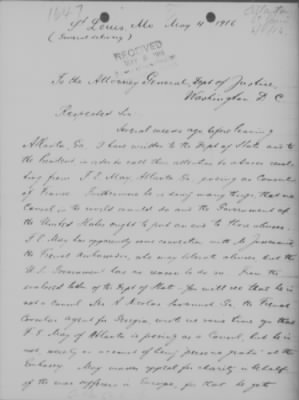 1647
St Louis, Mo May 4 1916
(General delivery)
RECEIVED
To the Attorney General, Dept of Justice,
Washington D. C.
Respected Sir:
Several weeks ago before leaving
Atlanta, Ga. I have written to the Dept of State and to
the President in order to call their attention to abuses
from J. E. May, Atlanta, Ga., posing as Consul
of France. Furthermore he is doing many things that no
Consul in the world would do and the Government of
the United States ought to put an end to those abuses.
May has apparently some connection with Mr Jusserand
the French Ambassador, who may tolerate abuses but the
U.S. Government has no reason to do so. From the
enclosed letter of the Dept of State you will see that he is
not a Consul. the French
Consular agent for Georgia, wrote me some time ago that
May of Atlanta is posing as a Consul, but he is
not on account of being "persona grata" at the
Embassy. May makes appeal for charity in behalf
of the war sufferers in Europe, for that he gets